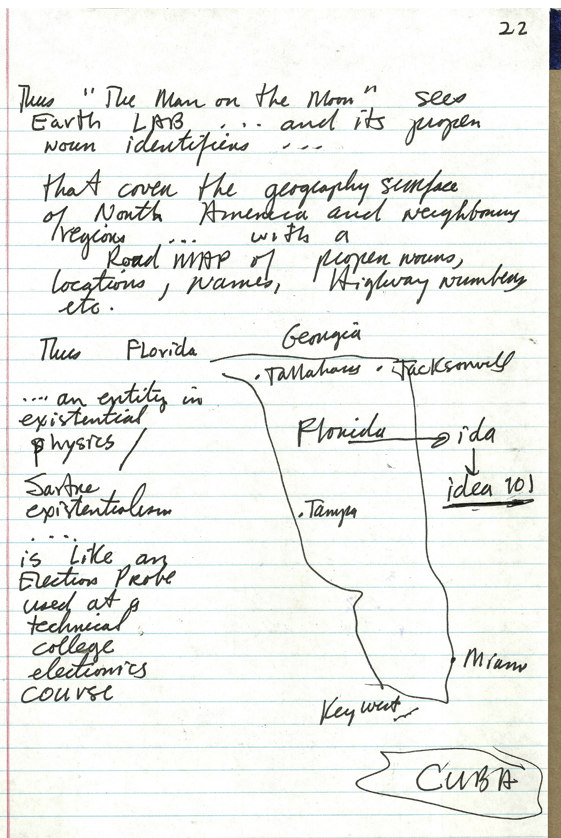 22
Thus "The Man on the Moon" sees
Earth LAB .... and its proper
noun identifiers ...
that cover the geography surface
of North America and neighbouring
regions .... with a
Road MAP of proper nouns,
locations, names, Highway numbers
etc.
Thus Florida
Georgia
.Tallahass . Jacksonvill
.... an entity in
existential
physics /
Florida → ida
idea 101
Sartre
existentialism
....
.Tampa
is like an
Electron Probe
used at a
technical
college
electronics
course
Miami
Key west
CUBA